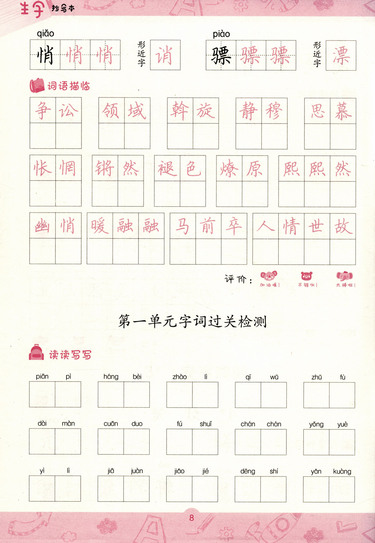 生字 抄写本
qiǎo piào
悄 悄 悄 形近字 诮 骠 骠 骠 形近字 漂
词语描临
争讼 领域 斡旋 静穆 思慕
怅惘 锵然 褪色 燎原 熙熙然
幽悄 暖融融 马前卒 人情世故
评价：
第一单元字词过关检测
读读写写
piān pì háng bèi zhào lì qí wǔ zhū fù
dài màn cuān duo fú shuǐ chàn chàn yōng yuè
yì lì jiā juàn jiāo jiē dēng shí yǎn kuàng
8